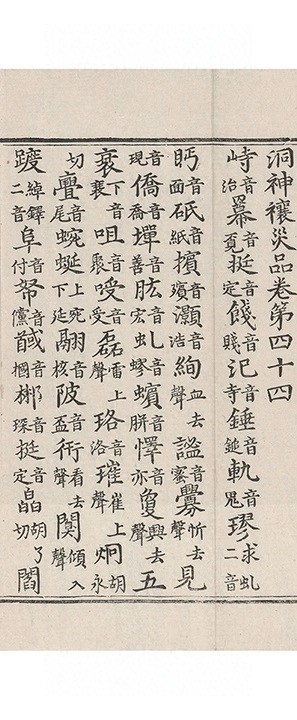 洞神禳災品卷第四十四
峙音治挺音定餞音賤汜音寺錘音鎚軌音鬼璆求虬二音
眄音面砥音紙擯音殯灝音浩絢血去聲謐音蜜釁忻去聲見
音現僑音喬墠音善肱音宏虬音蟉蠙音駢懌音亦敻興去聲五
咀音聚音受磊雷上聲珞音洛璀崔上聲炯胡永
切亹音尾蜿蜒上宛下延翮音核陂音盃衎看去聲闃傾入聲
踱綽鐸二音阜音付帑音儻馘音摑郴音琛挺音定皛胡了切閻